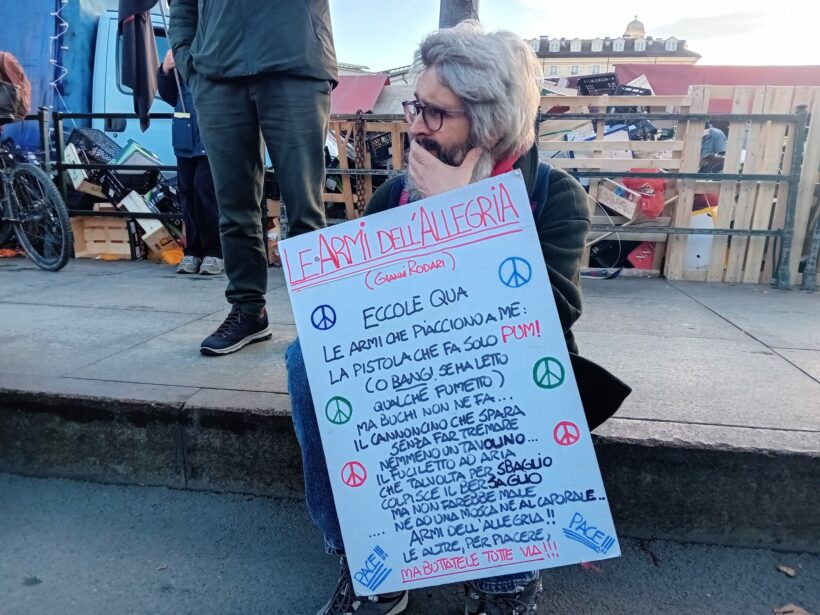 LE ARMI DELL'ALLEGRIA
(GIANNI RODARI)
ECCOLE QUA
LE ARMI CHE PIACCIONO A ME:
LA PISTOLA CHE FA SOLO PUM!
(O BANG! SE HA LETTO
QUALCHE FUMETTO)
MA BUCHI NON NE FA...
IL CANNONCINO CHE SPARA
SENZA FAR TREMARE
NEMMENO UN TAVOLINO...
IL FUCILETTO AD ARIA
CHE TALVOLTA PER SBAGLIO
COLPISCE IL BERSAGLIO
MA NON FAREBBE MALE
NÉ AD UNA MOSCA NÉ AL CAPORALE...
.... ARMI DELL'ALLEGRIA!!
LE ALTRE, PER PIACERE,
MA BUTTATELE TUTTE VIA!!!
PACE!!
PACE!!